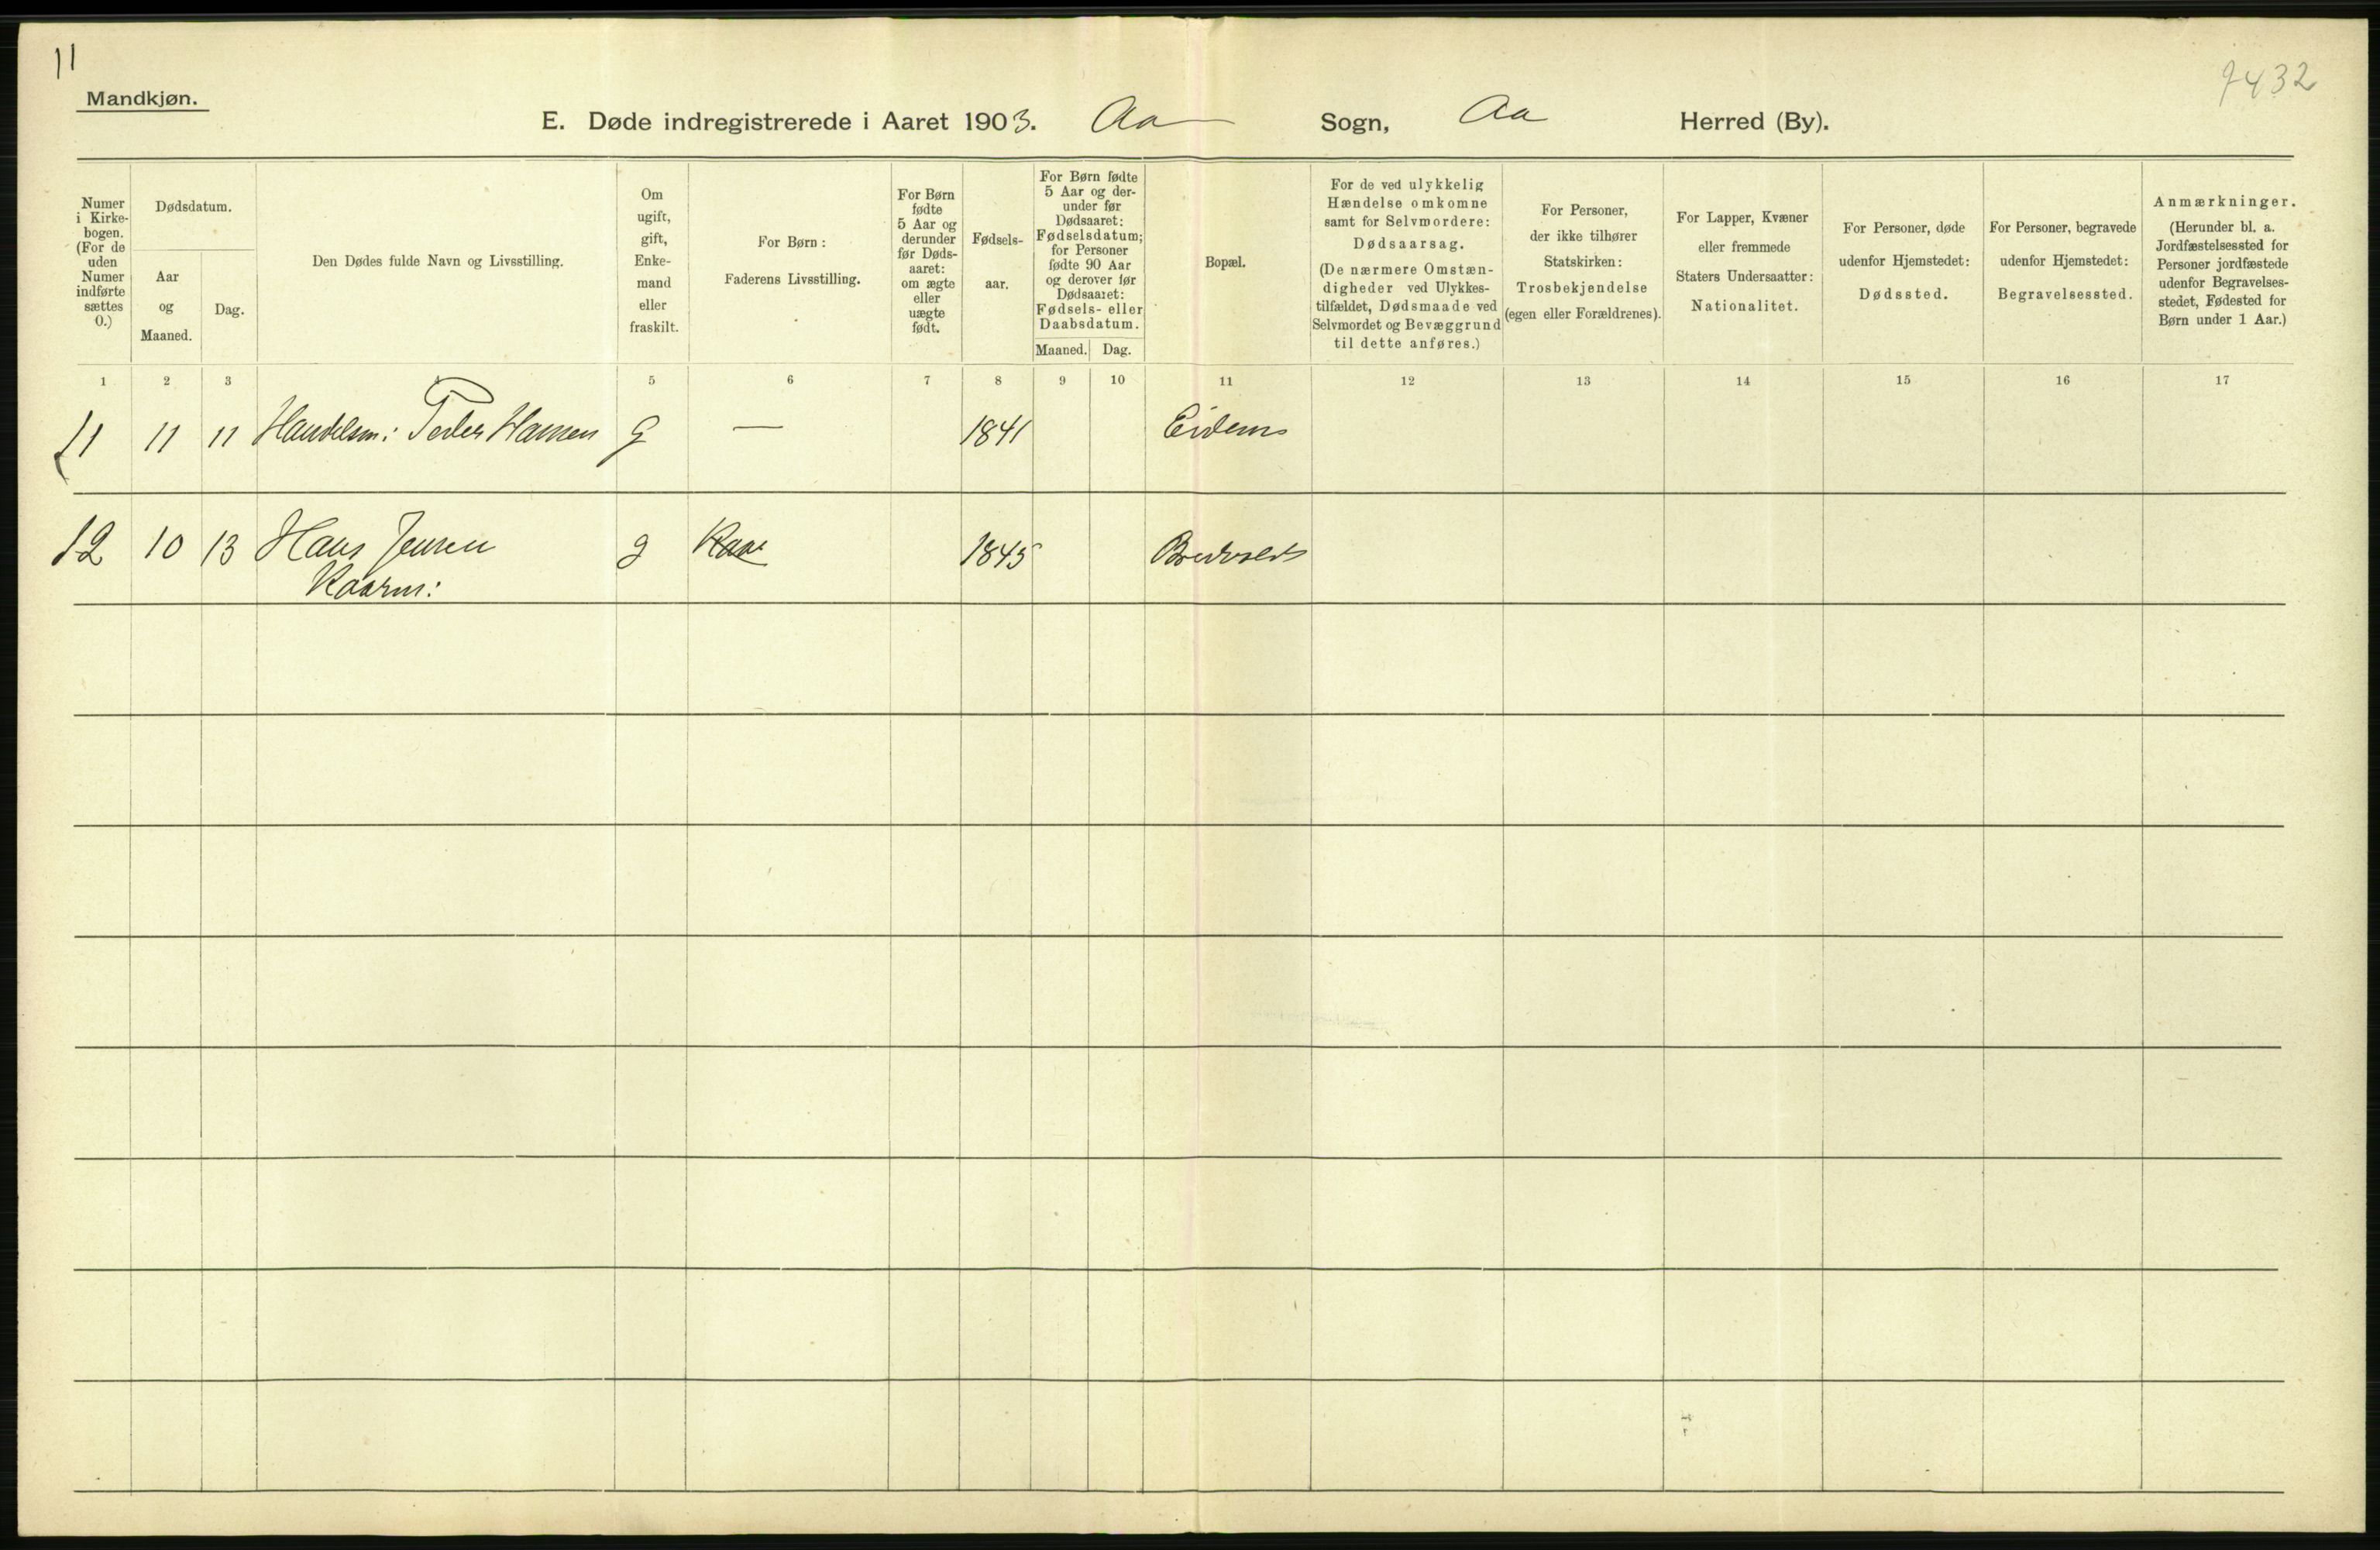 11
7432
Mandkjøn.
E. Døde indregistrerede i Aaret 1903. Aa Sogn, Aa Herred (By).
Numer
i Kirke-
bogen.
(For de
uden
Numer
indførte
sættes
0.)
Dødsdatum.
Aar
og
Maaned.
Dag.
Den Dødes fulde Navn og Livsstilling.
Om
ugift,
gift,
Enke-
mand
eller
fraskilt.
For Børn:
Faderens Livsstilling.
For Børn
fødte
5 Aar og
derunder
før Døds-
aaret:
om ægte
eller
uægte
født.
Fødsels-
aar.
For Børn fødte
5 Aar og der-
under før
Dødsaaret:
Fødselsdatum;
for Personer
fødte 90 Aar
og derover før
Dødsaaret:
Fødsels- eller
Daabsdatum.
Maaned. Dag.
Bopæl.
For de ved ulykkelig
Hændelse omkomne
samt for Selvmordere:
Dødsaarsag.
(De nærmere Omstæn-
digheder ved Ulykkes-
tilfældet, Dødsmaade ved
Selvmordet og Bevæggrund
til dette anføres.)
For Personer,
der ikke tilhører
Statskirken:
Trosbekjendelse
(egen eller Forældrenes).
For Lapper, Kvæner
eller fremmede
Staters Undersaatter:
Nationalitet.
For Personer, døde
udenfor Hjemstedet:
Dødssted.
For Personer, begravede
udenfor Hjemstedet:
Begravelsessted.
Anmærkninger.
(Herunder bl. a.
Jordfæstelsessted for
Personer jordfæstede
udenfor Begravelses-
stedet, Fødested for
Børn under 1 Aar.)
1 2 3 4 5 6 7 8 9 10 11 12 13 14 15 16 17
11 11 11 Handelsm: Peder Hansen g — 1841 Eidem
12 10 13 Hans Jensen g 1845
Kaarm: